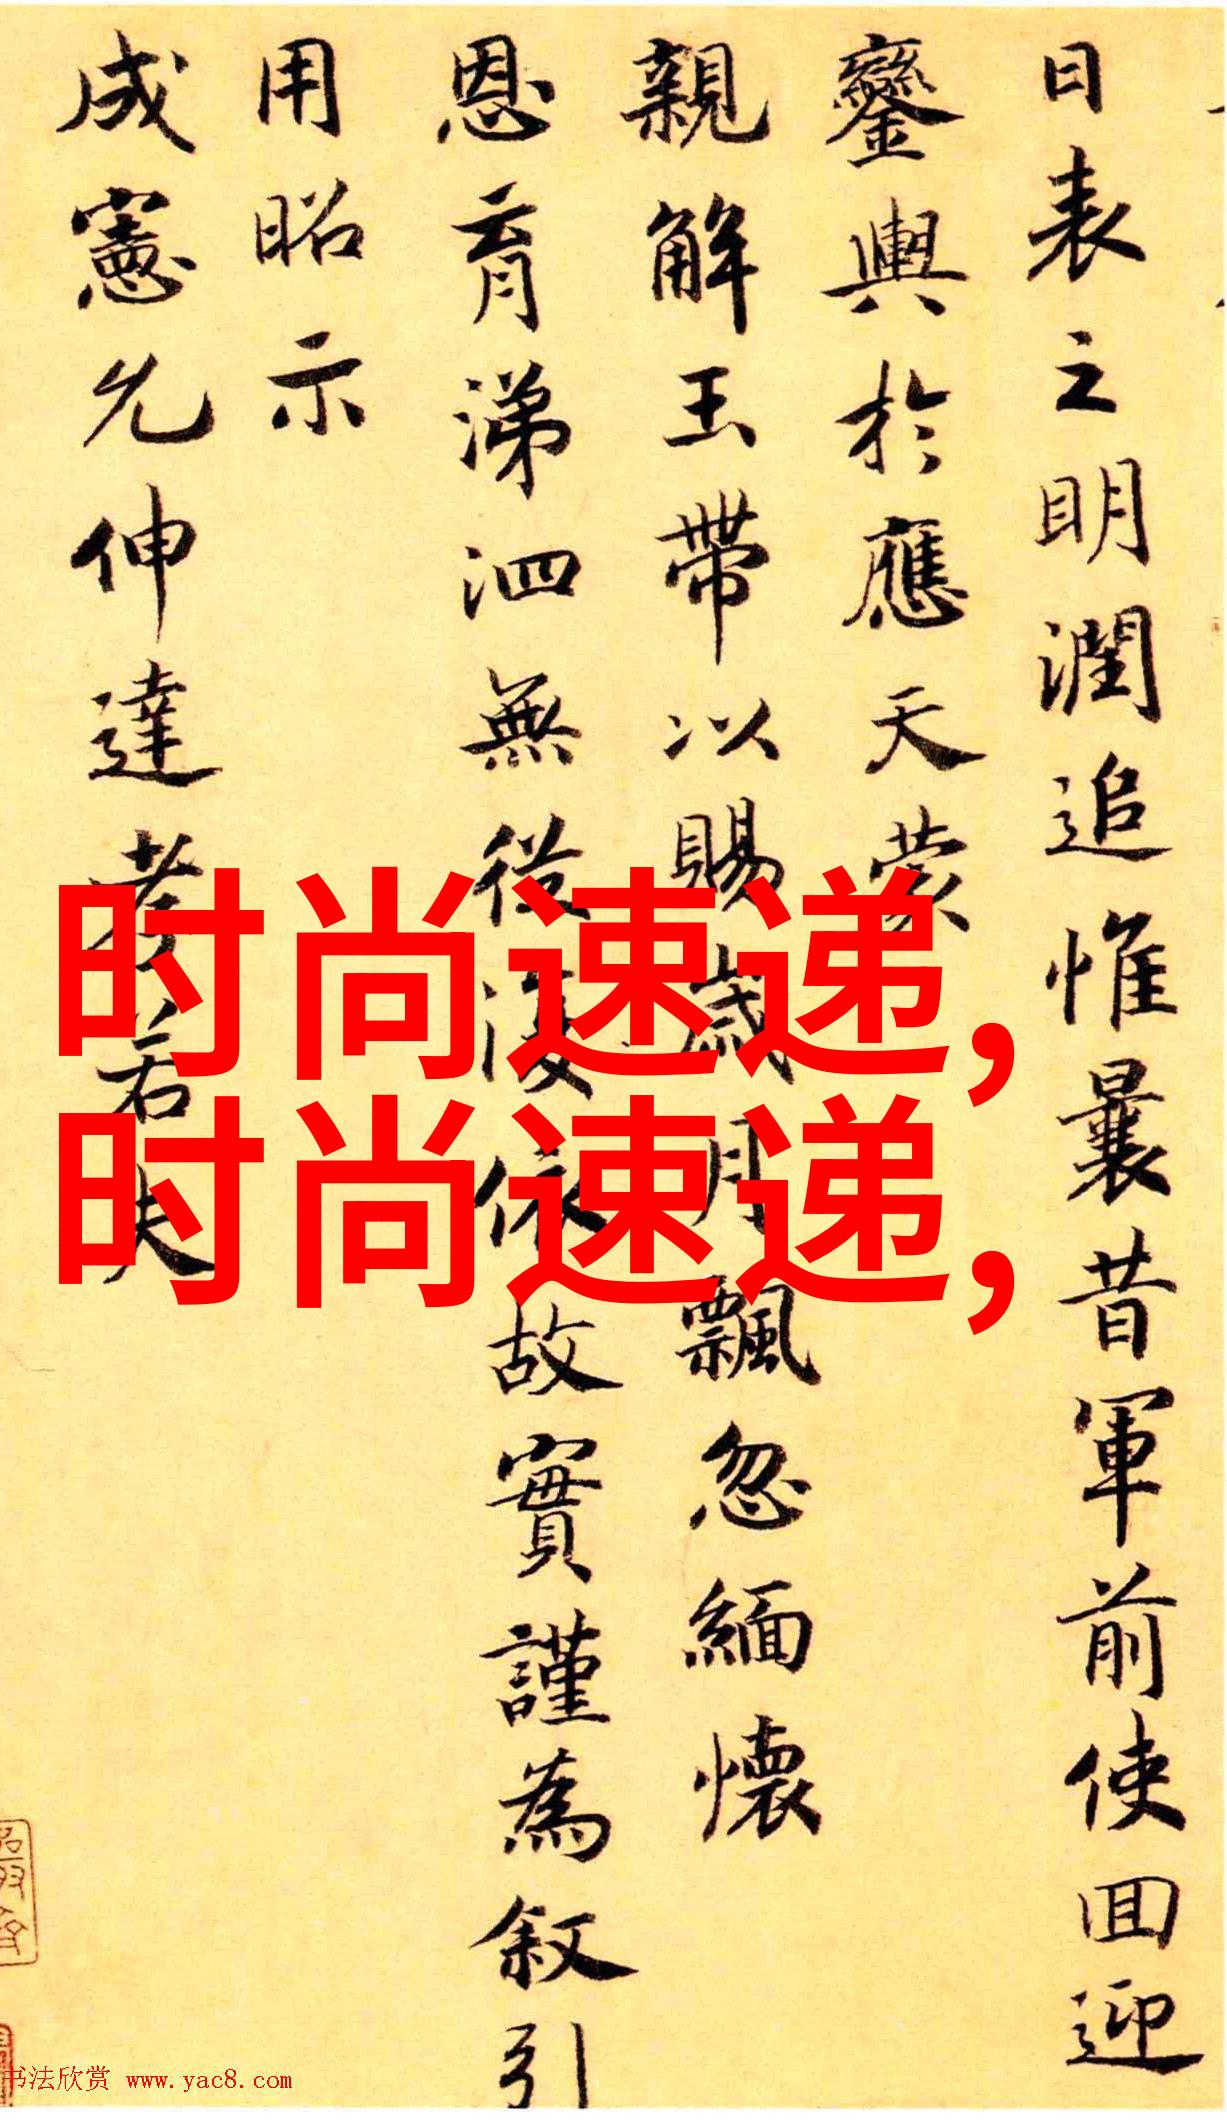 日表之明潤追惟曩昔軍前使回迎
鑾輿於應天蒙
親解玉帶以賜歲月飄忽緬懷
恩育涕泗無從復依故實謹為叙引
用昭示
成憲允伸達孝若夫
时尚速递,
时尚速递,
书法欣赏 www.yac8.com